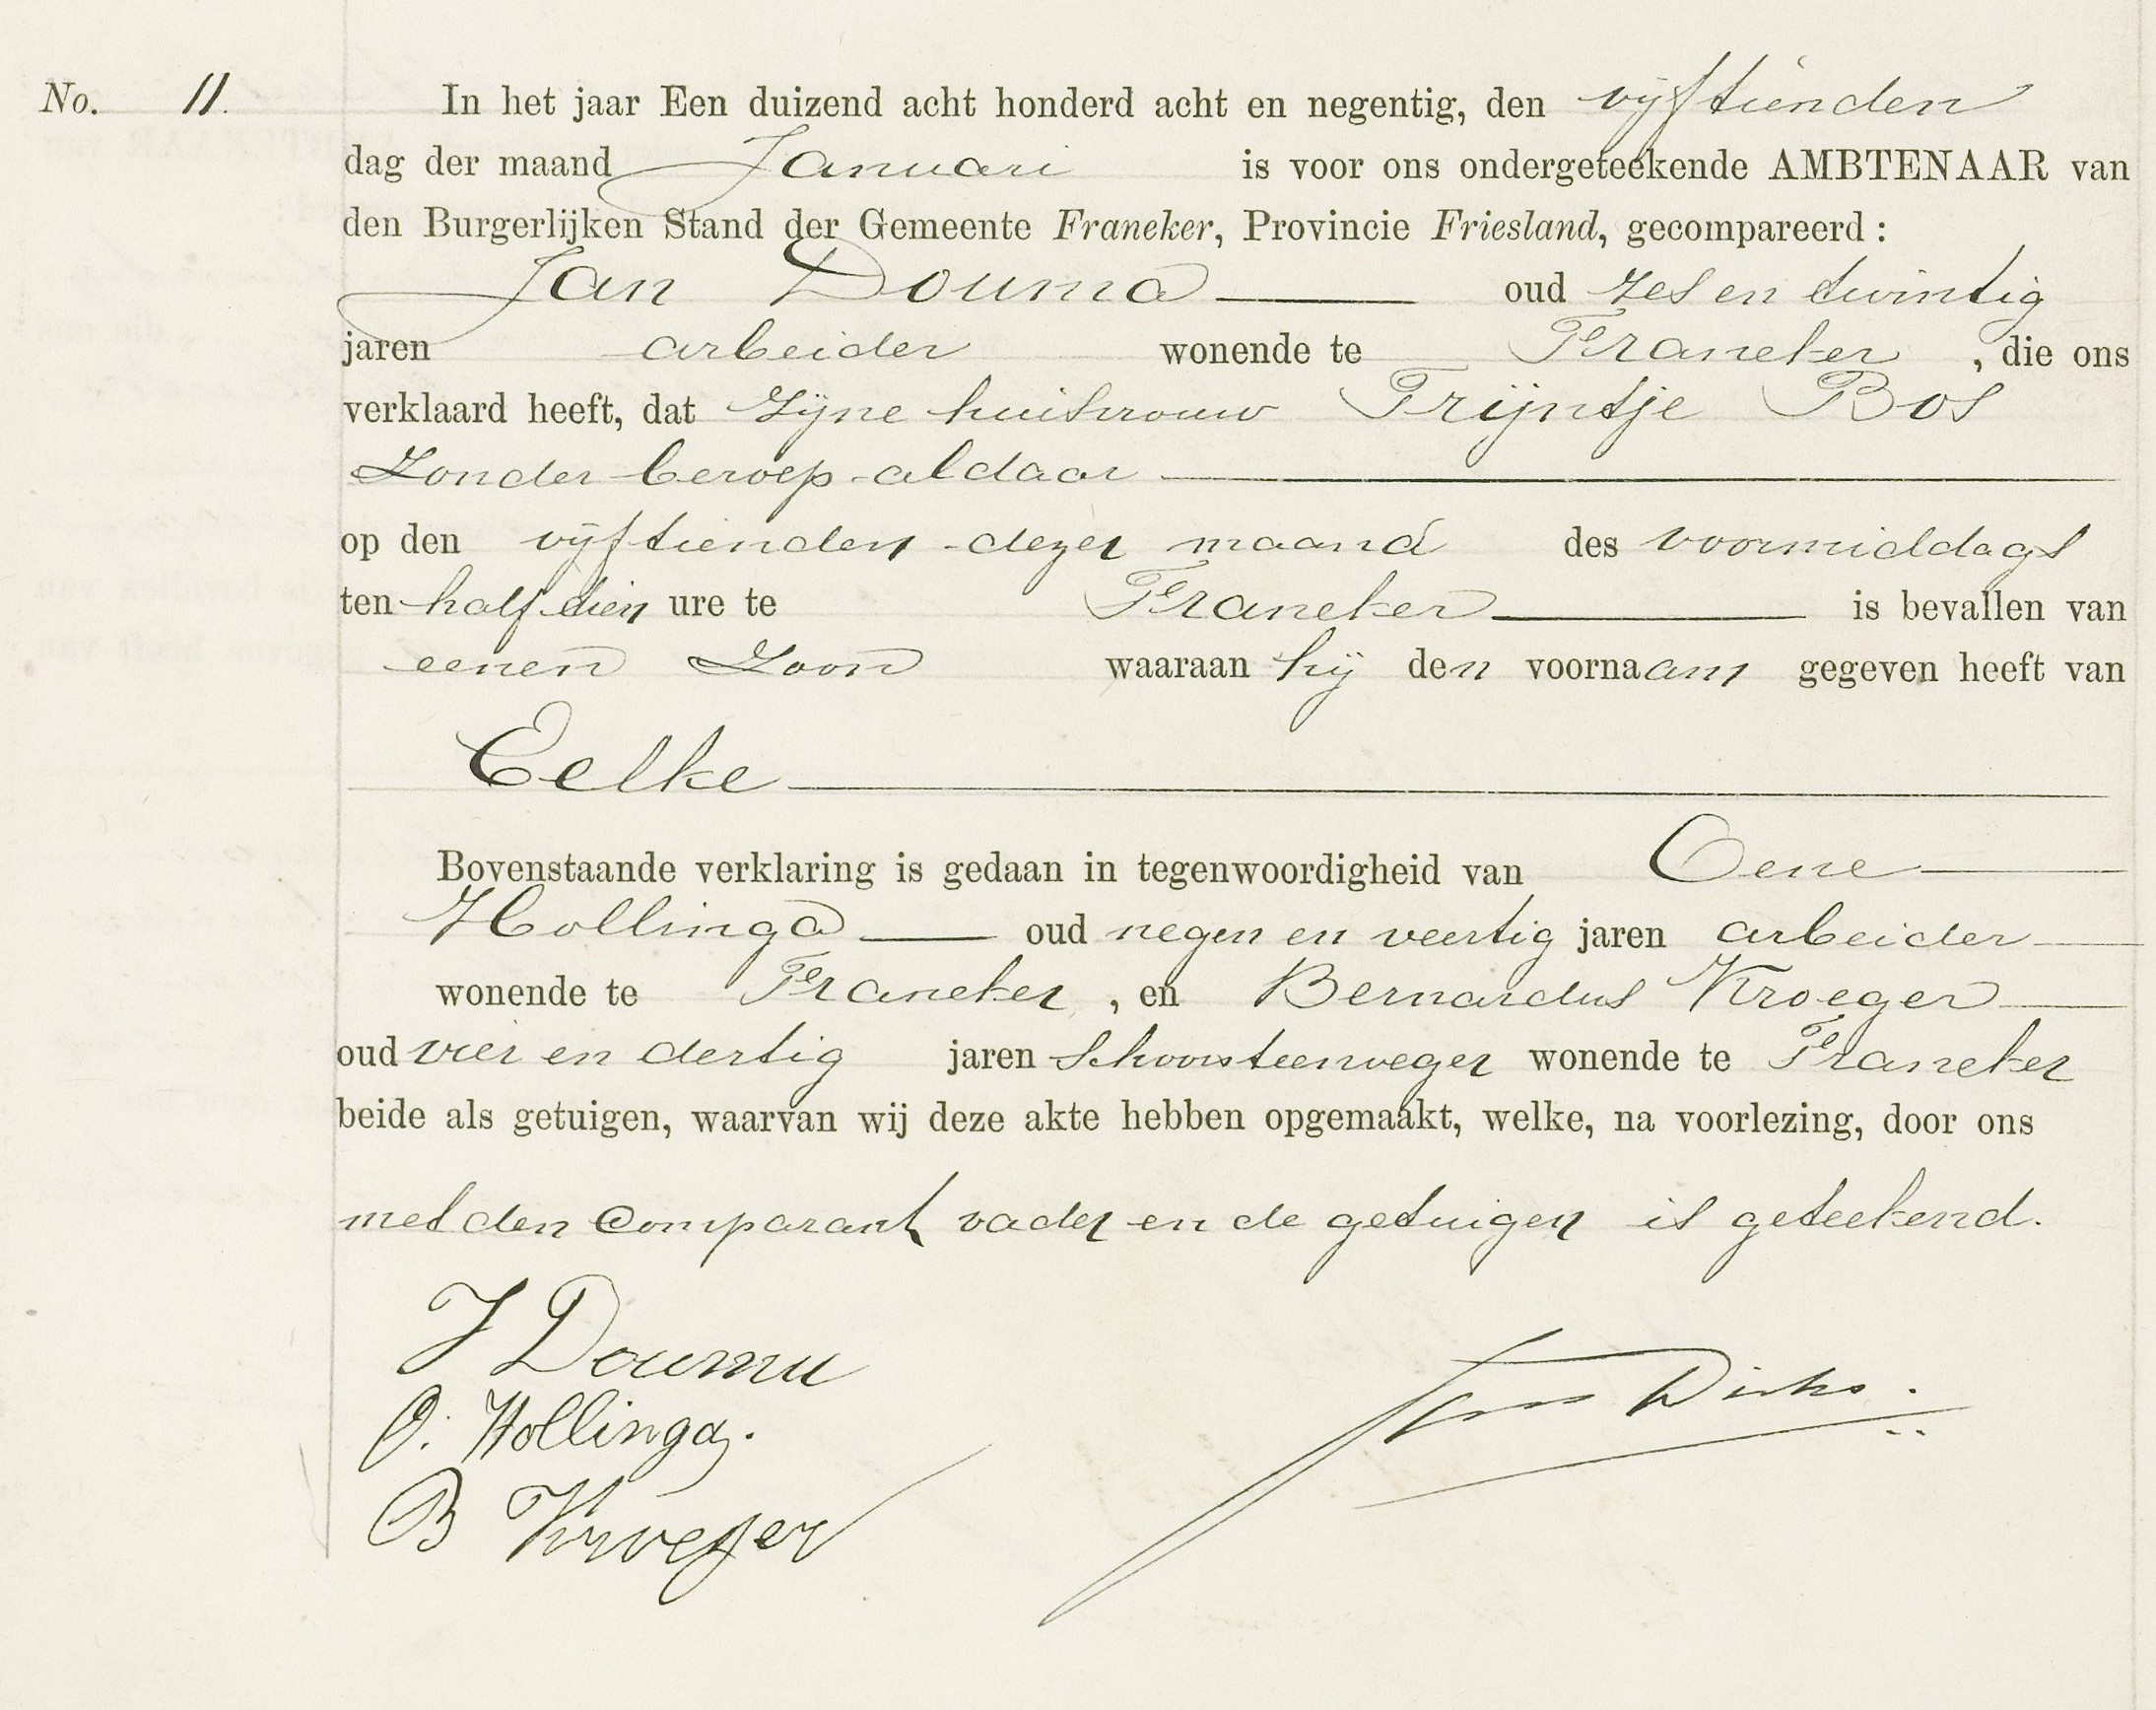 No. 11. In het jaar Een duizend acht honderd acht en negentig, den vijftienden
dag der maand Januari is voor ons ondergeteekende AMBTENAAR van
den Burgerlijken Stand der Gemeente Franeker, Provincie Friesland, gecompareerd :
Jan Douma oud zes en twintig
jaren arbeider wonende te Franeker , die ons
verklaard heeft, dat zijne huisvrouw Trijntje Bos
zonder beroep aldaar
op den vijftienden dezer maand des voormiddags
ten half tien ure te Franeker is bevallen van
eenen zoon waaraan hij den voornaam gegeven heeft van
Eelke
Bovenstaande verklaring is gedaan in tegenwoordigheid van Oene
Hollinga oud negen en veertig jaren arbeider
wonende te Franeker , en Bernardus Kroeger
oud vier en dertig jaren schoorsteenveger wonende te Franeker
beide als getuigen, waarvan wij deze akte hebben opgemaakt, welke, na voorlezing, door ons
met den comparant vader en de getuigen is geteekend.
J Douma
Dirks.
O. Hollinga.
B Kroeger